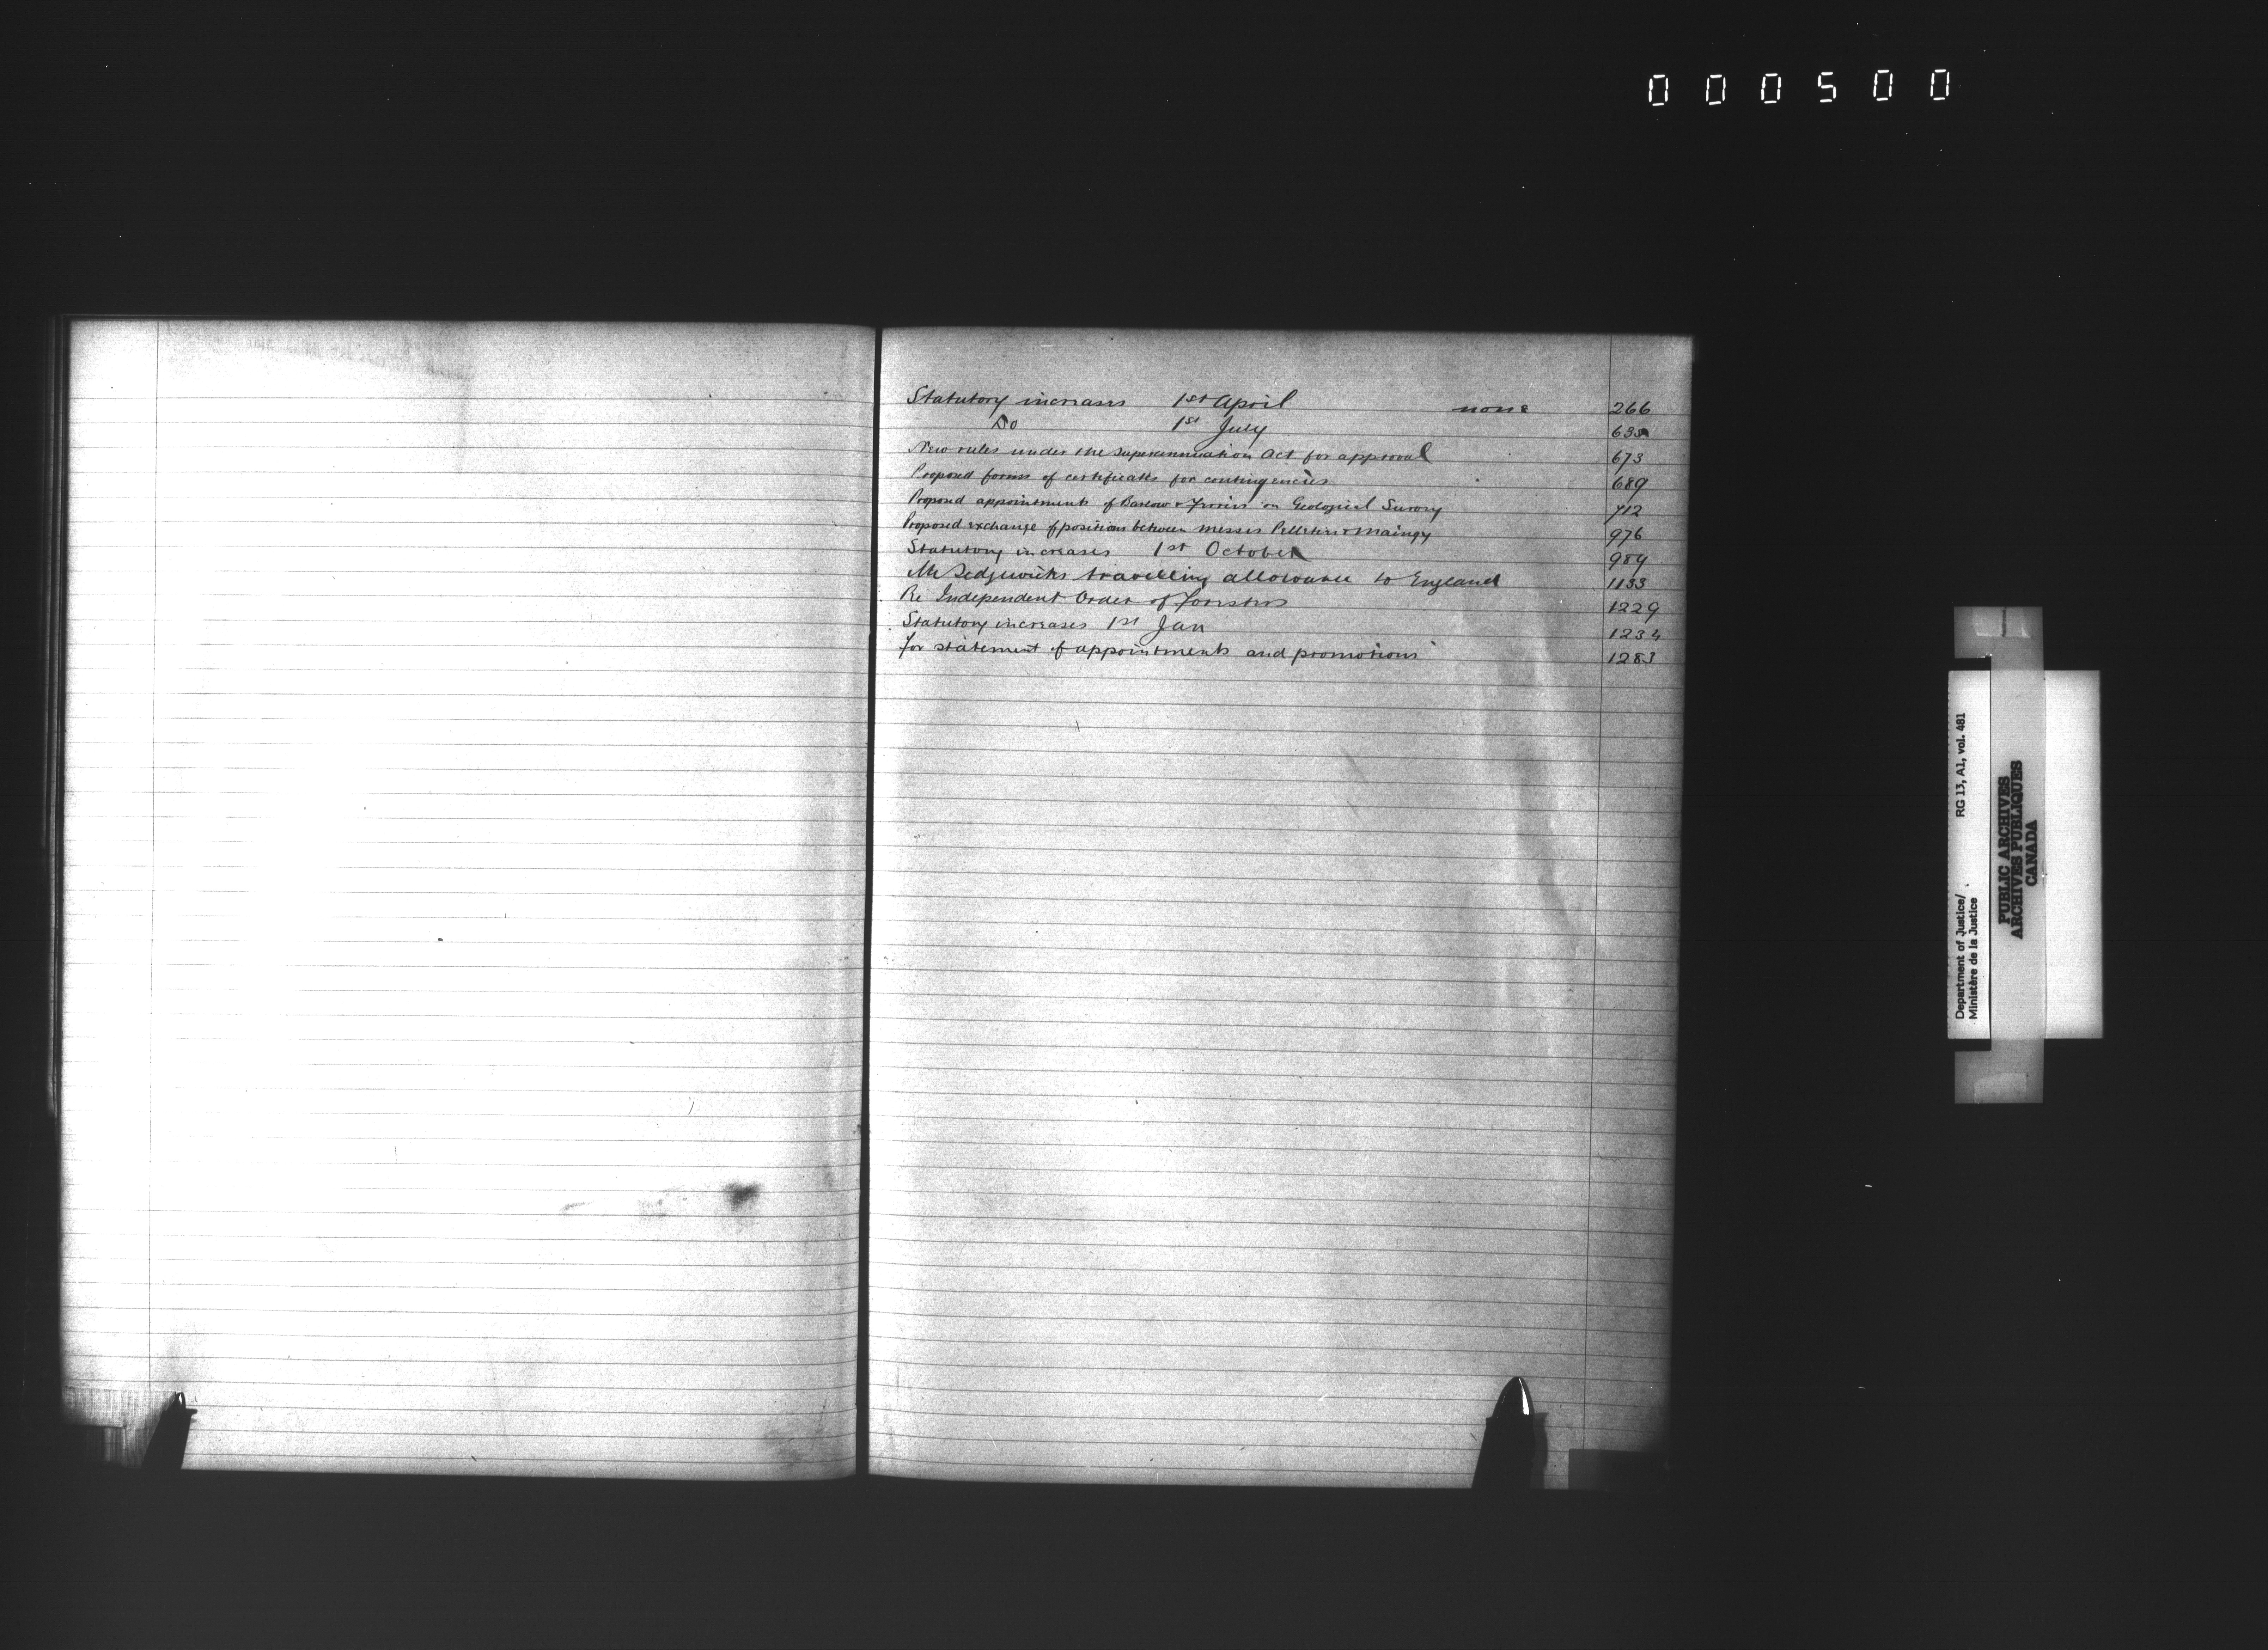 000500
Statutory increases 1st April none 266
Do 1st July 635
New rules under the Superannuation Act for approval 673
Proposed forms of certificates for contingencies 689
Proposed appointments of Barlow & on Geological Survey 712
Proposed exchange of positions between Messrs Pelletier & Maingy 976
Statutory increases 1st October 984
Mr Sedgewicks travelling allowance to England 1133
Re Independent Order of Foresters 1229
Statutory increases 1st Jan 1234
For statement of appointments and promotions 1283
Department of Justice/ RG 13, A1, vol. 481
Ministère de la Justice
PUBLIC ARCHIVES
ARCHIVES PUBLIQUES
CANADA